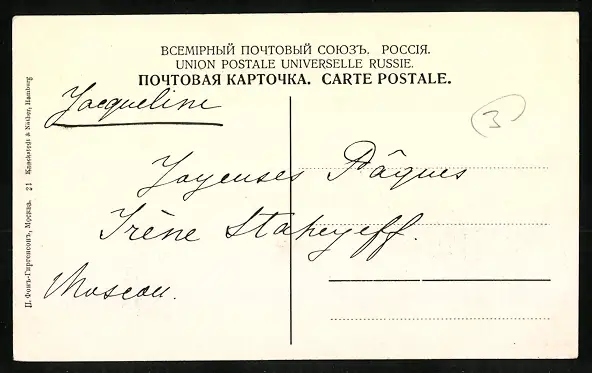 ВСЕМІРНЫЙ ПОЧТОВЫЙ СОЮЗЪ. РОССІЯ.
UNION POSTALE UNIVERSELLE RUSSIE.
ПОЧТОВАЯ КАРТОЧКА. CARTE POSTALE.
Jacqueline
3
Joyeuses Pâques
Irène Staheyeff.
Moscou.
П. Фонъ-Гиргенсонъ, Москва. 21 Knackstedt & Näther, Hamburg